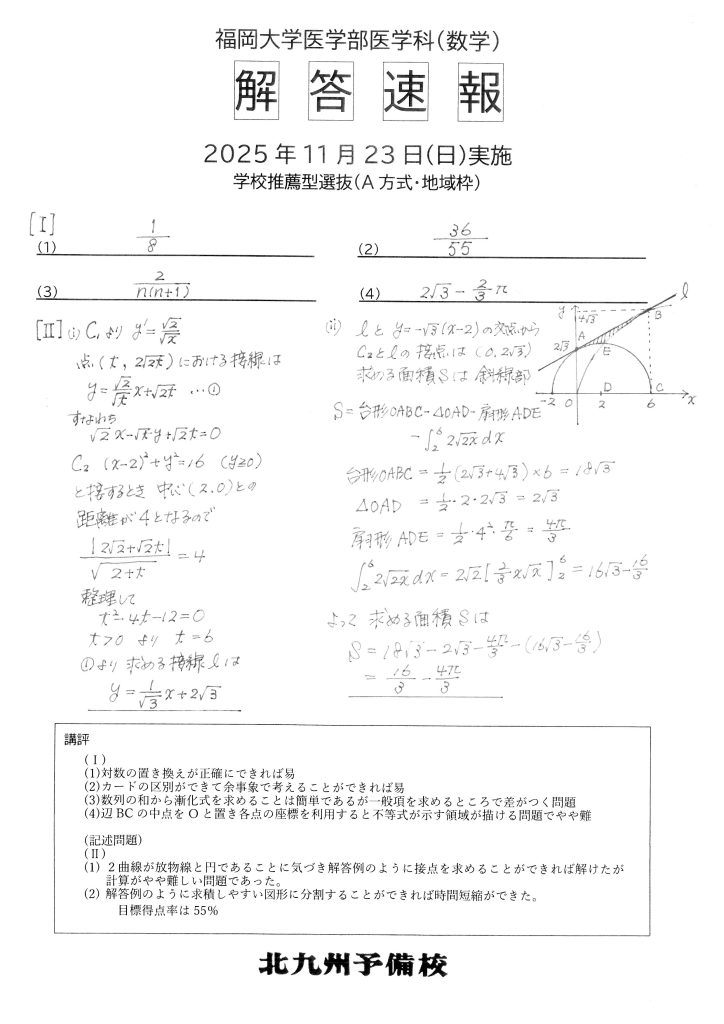 福岡大学医学部医学科(数学)
解答速報
2025年11月23日(日)実施
学校推薦型選抜(A方式・地域枠)
[I]
(1) 1/8
(2) 36/55
(3) 2/n(n+1)
(4) 2√3 - 2/3 π
[II] (i) C₁より y' = √2/√x
点(t, 2√2t)における接線は
y = √2/√t x + √2t …①
すなわち
√2 x - √t y + √2 t = 0
C₂ (x-2)² + y² = 16 (y≧0)
と接するとき 中心(2,0)との
距離が4となるので
|2√2+√2t|/√2+t = 4
整理して
t² - 4t - 12 = 0
t>0 より t = 6
①より 求める接線ℓは
y = 1/√3 x + 2√3
(ii) ℓと y=-√3(x-2)の交点から
C₂とℓの接点は (0, 2√3)
求める面積Sは 斜線部
S = 台形OABC - △OAD - 扇形ADE
- ∫₂⁶ 2√2x dx
台形OABC = 1/2 (2√3+4√3)×6 = 18√3
△OAD = 1/2・2・2√3 = 2√3
扇形ADE = 1/2・4²・π/6 = 4π/3
∫₂⁶ 2√2x dx = 2√2 [2/3 x√x]₂⁶ = 16√3 - 16/3
よって 求める面積Sは
S = 18√3 - 2√3 - 4π/3 - (16√3 - 16/3)
= 16/3 - 4π/3
y
4√3
B
ℓ
A
2√3
E
D
C
-2
O
2
6
x
講評
(I)
(1)対数の置き換えが正確にできれば易
(2)カードの区別ができて余事象で考えることができれば易
(3)数列の和から漸化式を求めることは簡単であるが一般項を求めるところで差がつく問題
(4)辺BCの中点をOと置き各点の座標を利用すると不等式が示す領域が描ける問題でやや難
(記述問題)
(II)
(1) 2曲線が放物線と円であることに気づき解答例のように接点を求めることができれば解けたが
計算がやや難しい問題であった。
(2) 解答例のように求積しやすい図形に分割することができれば時間短縮ができた。
目標得点率は55%
北九州予備校